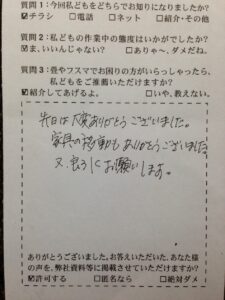 質問1:今回私どもをどちらでお知りになりましたか?
☑チラシ □電話 □ネット □紹介・その他
質問2:私どもの作業中の態度はいかがでしたか?
☑ま、いいんじゃない? □ありゃ~、ダメだね。
質問3:畳やフスマでお困りの方がいらっしゃったら、
私どもをご推薦いただけますか?
☑紹介してあげるよ。 □いや、教えない。
先日は大変ありがとうございました。
家具の移動もありがとうございました。
又、良ろしくお願いします。
ありがとうございました。お答えいただいた、あなた様
の声を、弊社資料等に掲載させていただけますか?
☑許可する □匿名なら □絶対ダメ